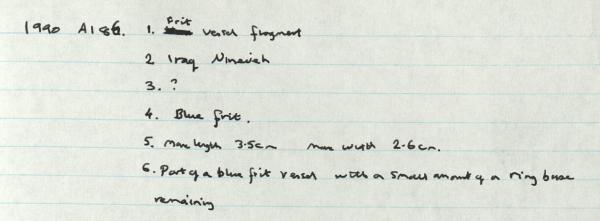 1990 A186. 1. Frit vessel fragment
2 Iraq Nineveh
3. ?
4. Blue frit.
5. Max length 3.5cm max width 2.6cm.
6. Part of a blue frit vessel with a small amount of a ring base
remaining